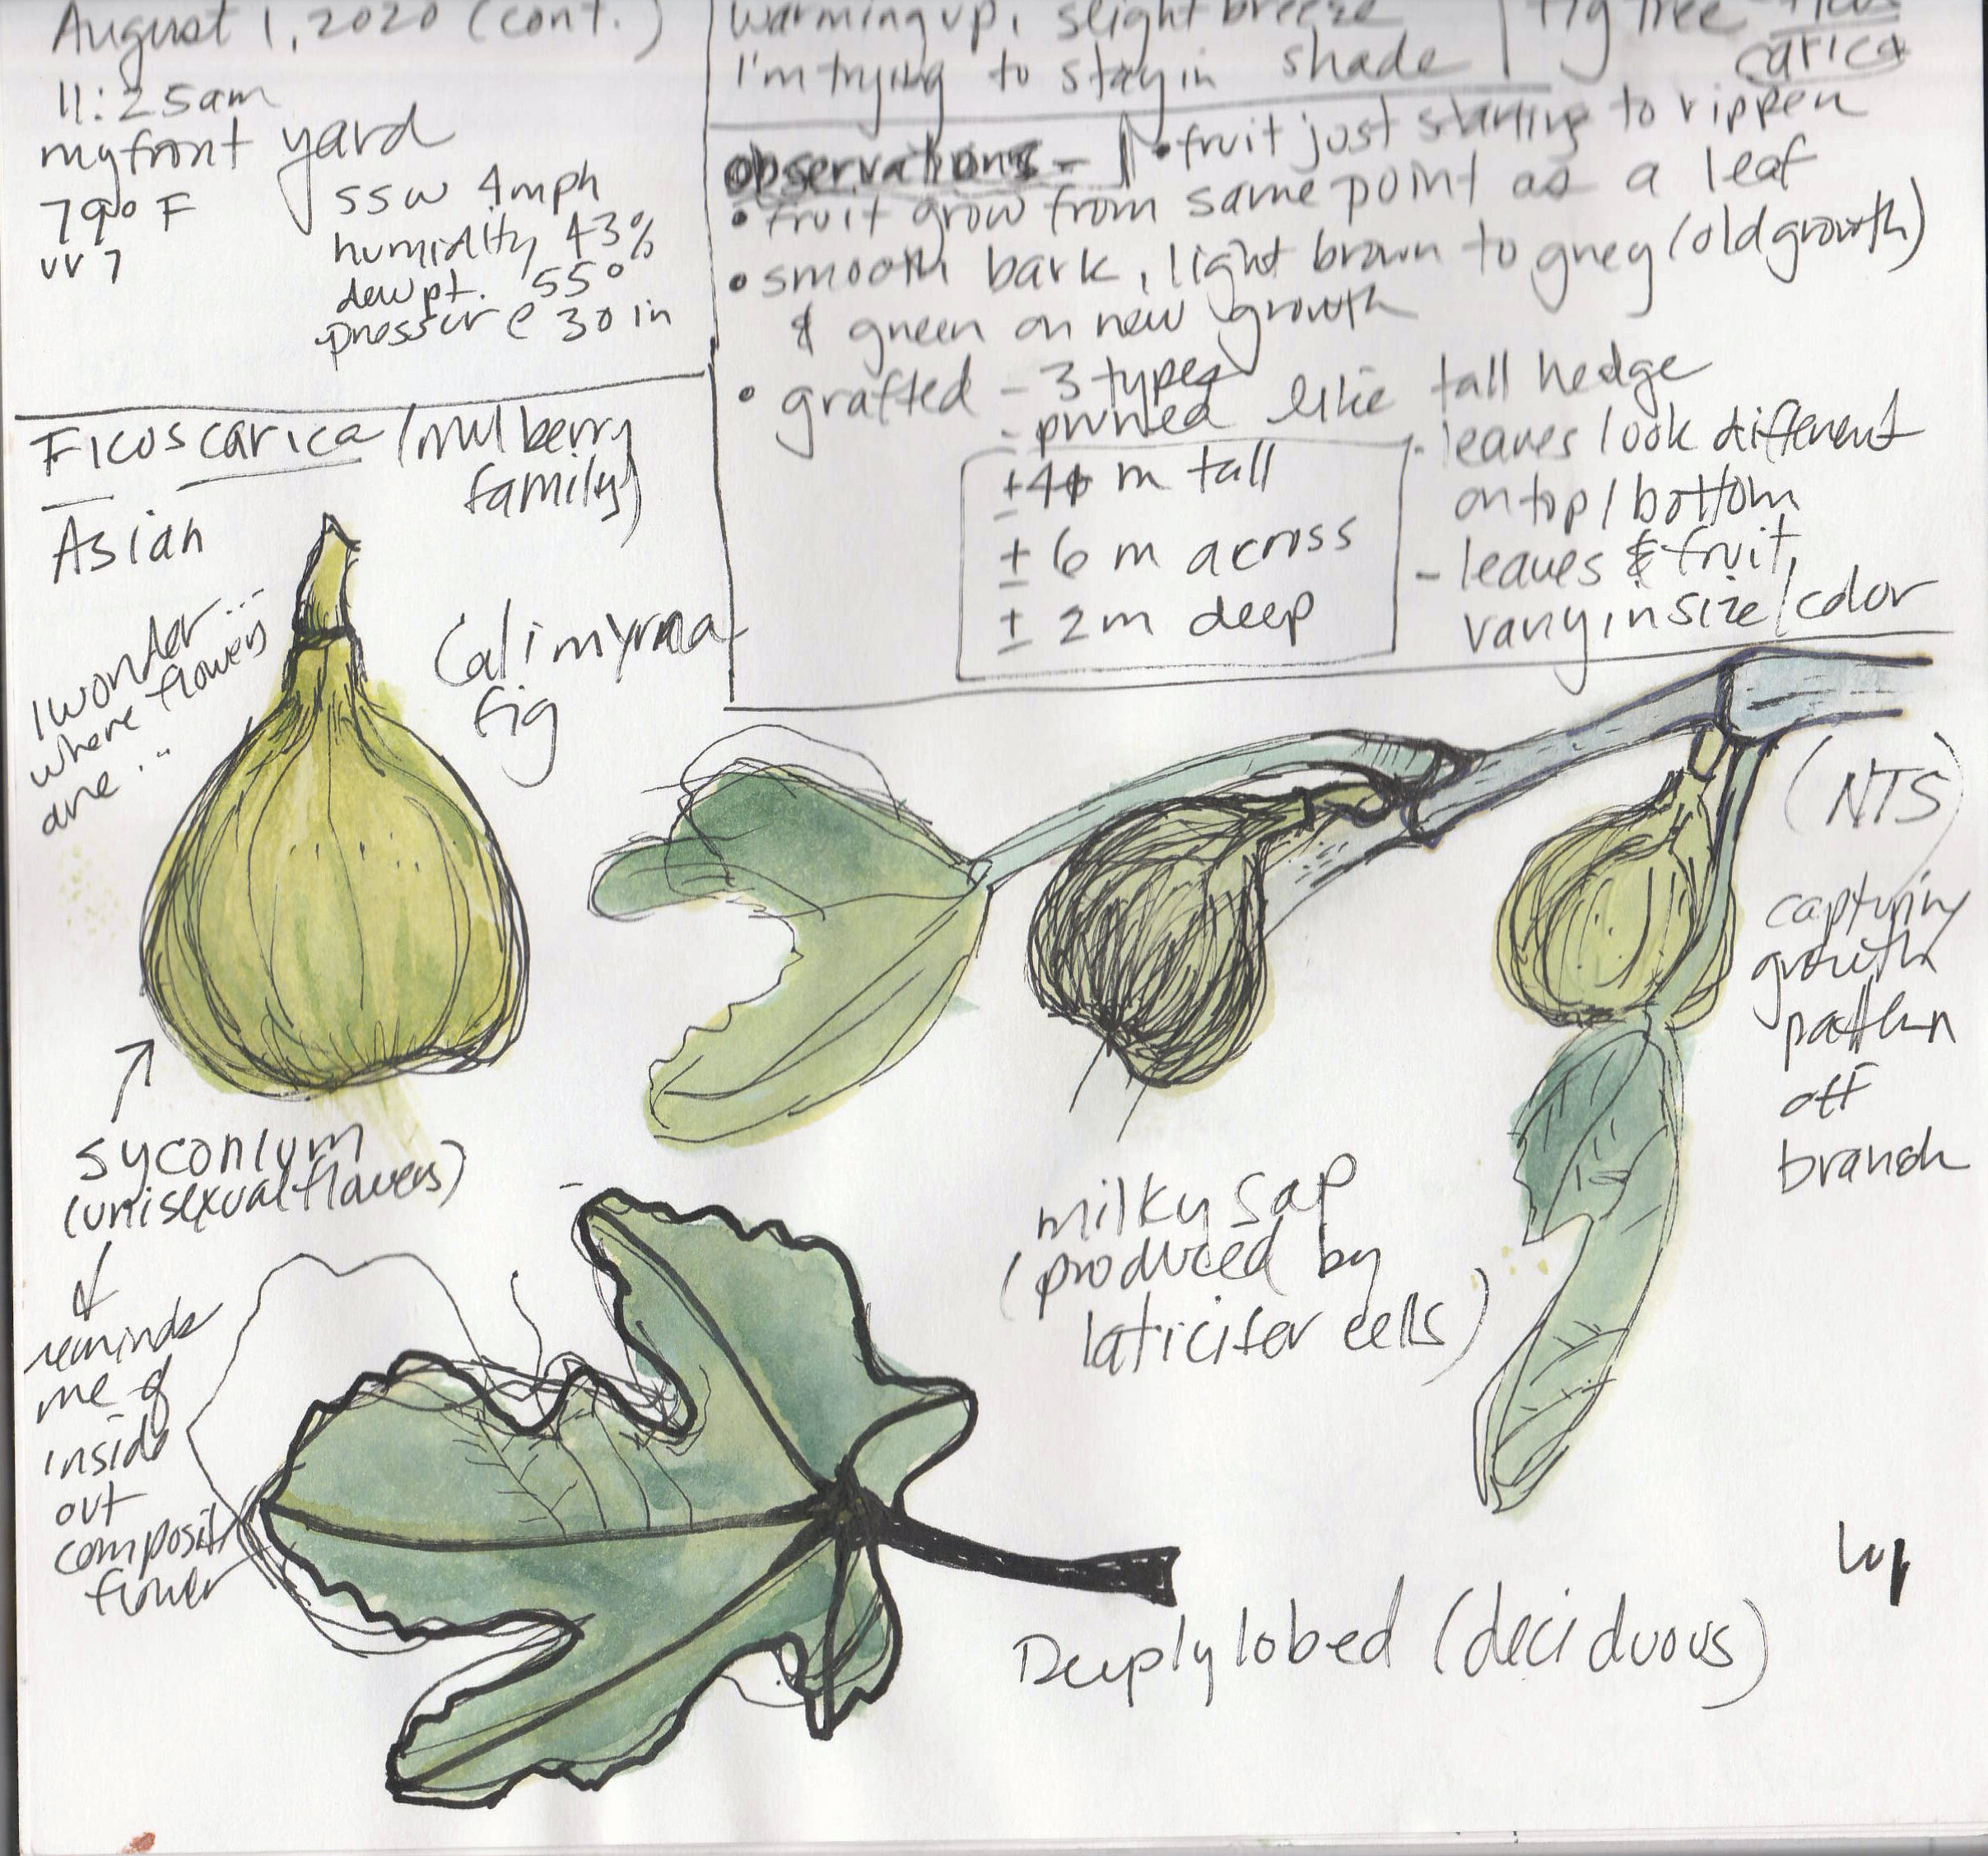 August 1, 2020 (cont.)
11:25am
my front yard
79° F
UV 7
SSW 4mph
humidity 43%
dew pt. 55°
pressure 30 in
warming up, slight breeze
I'm trying to stay in shade
fig tree Ficus
carica
observations -
• fruit just starting to rippen
• fruit grow from same point as a leaf
• smooth bark, light brown to grey (old growth)
& green on new growth
• grafted - 3 types
- pruned like tall hedge
± 4 m tall
± 6 m across
± 2m deep
- leaves look different
on top / bottom
- leaves & fruit
vary in size / color
Ficus carica (mulberry
family)
Asian
I wonder...
where flowers
are...
Calimyrna
fig
(NTS)
capturing
growth
pattern
off
branch
syconium
(unisexual flowers)
reminds
me of
inside
out
composit
flower
milky sap
(produced by
laticifer cells)
Deeply lobed (deciduous)